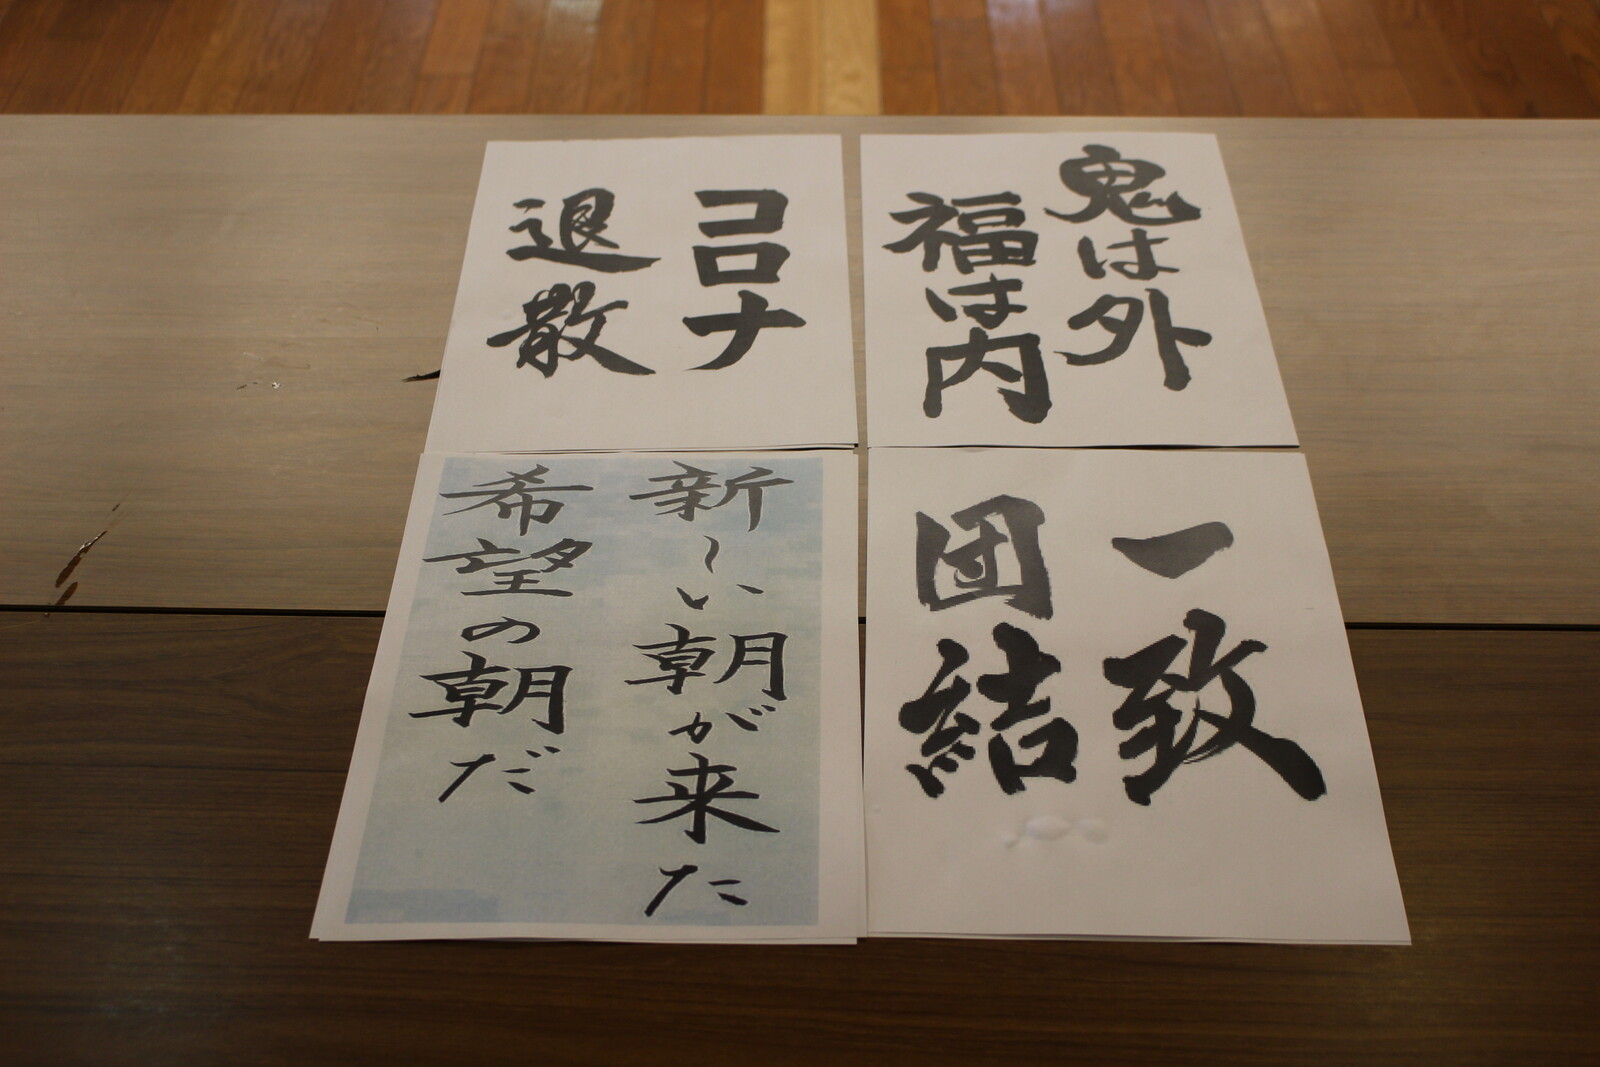 鬼は外
福は内
コロナ
退散
一致
団結
新しい朝が来た
希望の朝だ